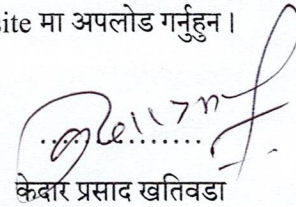 site मा अपलोड गर्नुहुन।
केदार प्रसाद खतिवडा